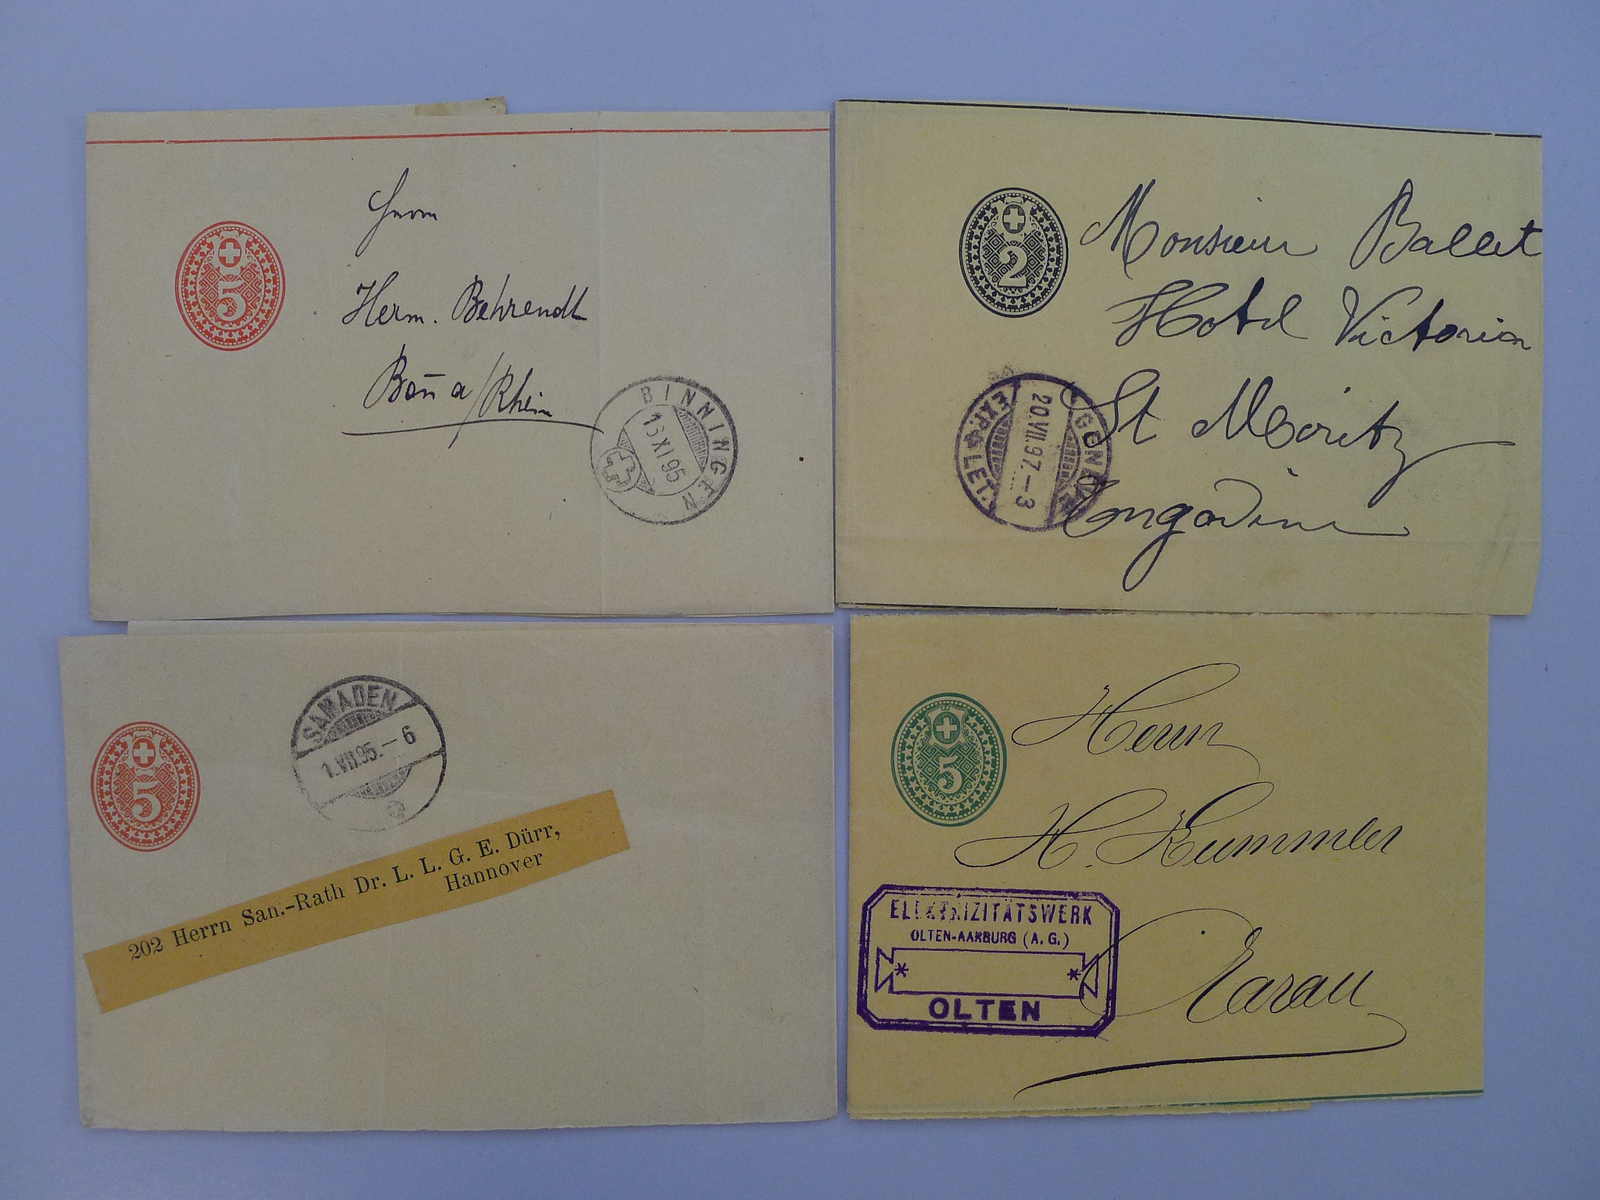 5
Herrn
Herm. Behrendt
Bon̄ a/Rhein
BINNINGEN
16 XI 95
2
Monsieur Ballet
Hotel Victoria
St Moritz
Engadine
GENÈVE
20.VII.97.–3
EXP. LET.
5
SAMADEN
1.VII.95.–6
202 Herrn San.-Rath Dr. L. L. G. E. Dürr,
Hannover
5
Herrn
H. Kummler
Aarau
ELEKTRIZITÄTSWERK
OLTEN-AARBURG (A. G.)
* *
OLTEN